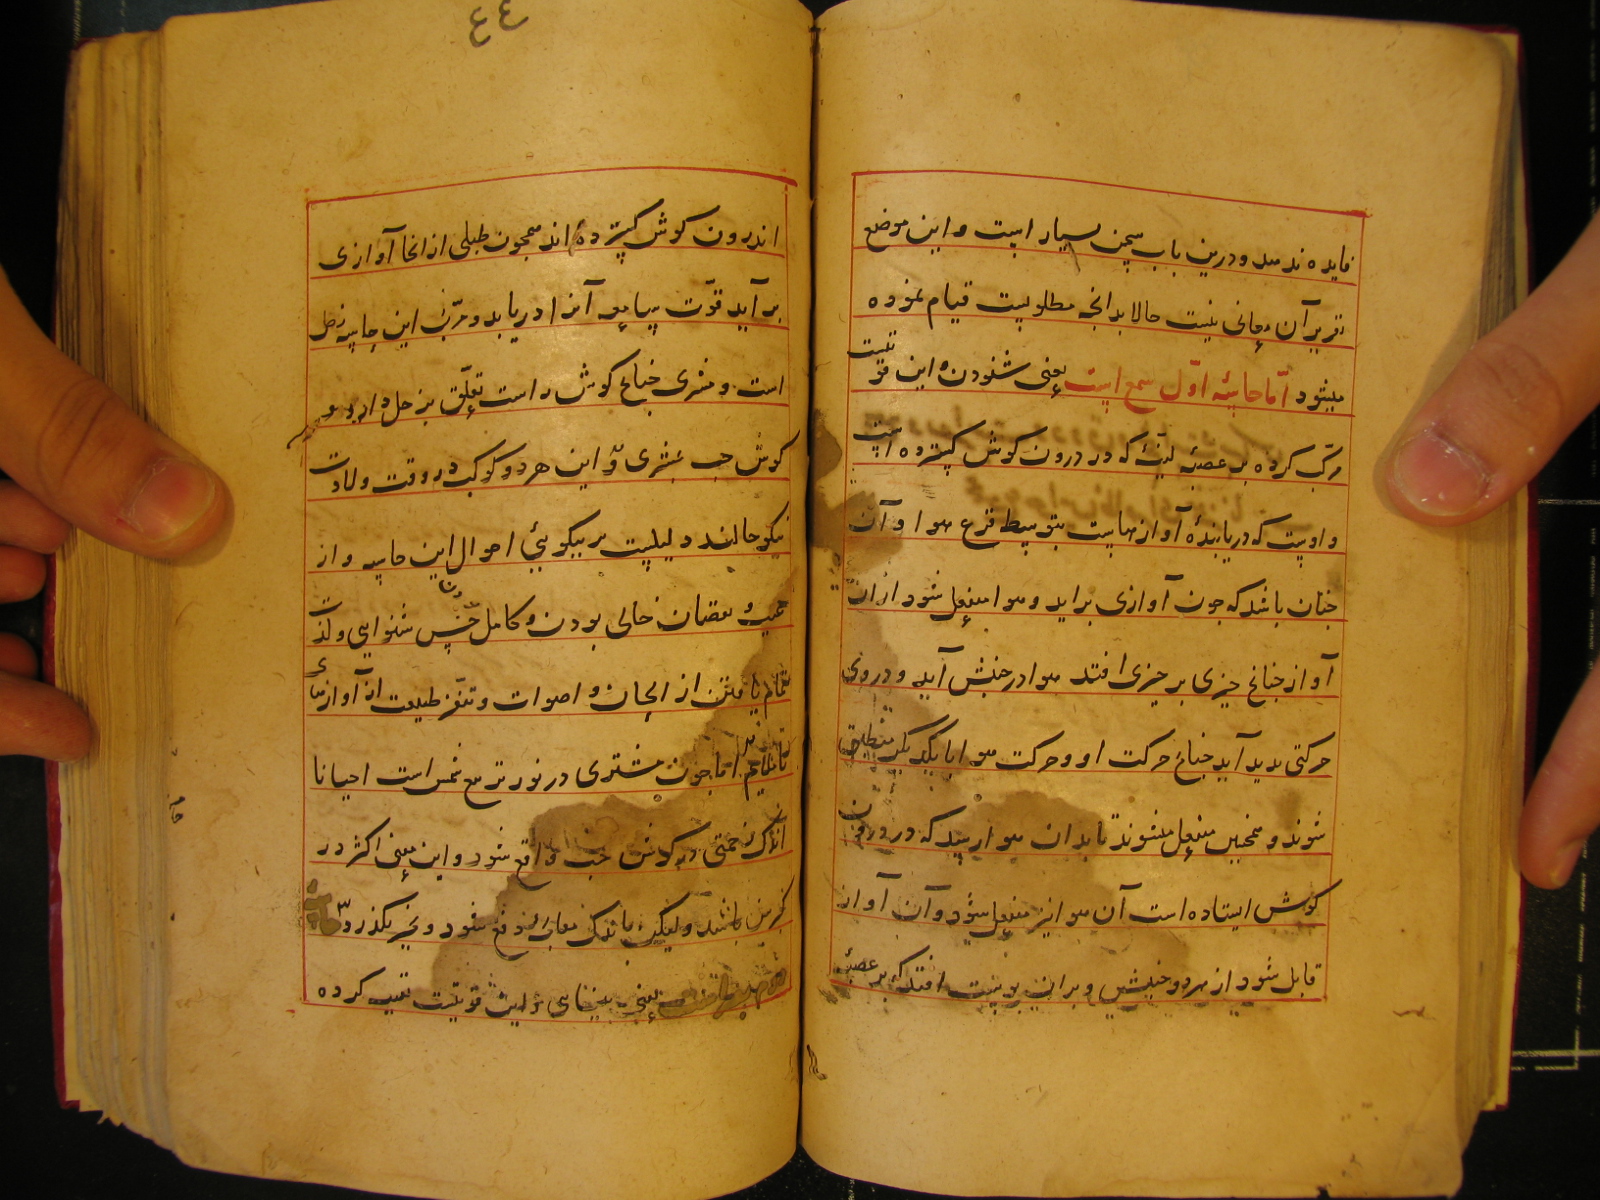 فایده ندهد و درین باب سخن بسیار است و این موضع
تقریر آن معانی نیست حالا بدانچه مطلوبست قیام نموده
میشود اما حاسّهٔ اوّل سمع است یعنی شنودن و این قوّتیست
مرکّب کرده بر عصبهٔ که در درون کوش کسترده است
و اوست که دریابندهٔ آوازهاست بتوسط قرع هوا و آن
چنان باشد که چون آوازی براید و هوا منفعل شود ازان
آواز چنانچ چیزی بر چیزی افتد هوا در جنبش آید و دروی
حرکتی بدید آید چنانچ حرکت او و حرکت هوا با یکدیکر منطبق
شوند و همچنین منفعل میشوند تا بدان هوا رسید که در درون
کوش ایستاده است آن هوا نیز منفعل شود و آن آواز
قابل شود از هر دو جنبش و بران پوست افتد که بر عصبهٔ
٤٤
اندرون کوش کسترده اند همچون طبلی از انجا آوازی
بر آید قوّت سامعه آنرا دریابد و مربّی این حاسه زحل
است و مشتری چناخ کوش راست تعلّق بزحل دارد و
کوش چپ بمشتری و این هر دو کوکب در وقت ولادت
نیکو حالند دلیلیست بر نیکویی احوال این حاسه و از
عیب و نقصان خالی بودن و کامل حسّ شنوایی و لذّت
تمام یافتن از الحان و اصوات و تنفّر طبیعت از آوازهای
ناملایم اما چون مشتری در نور تربیع نحس است احیانا
اندک زحمتی در کوش چپ واقع شود و این معنی اکثر در
باشد ولیکن باندک دفع شود و بخیر بکذرد
یعنی بینای و این قوتیست تعبیه کرده